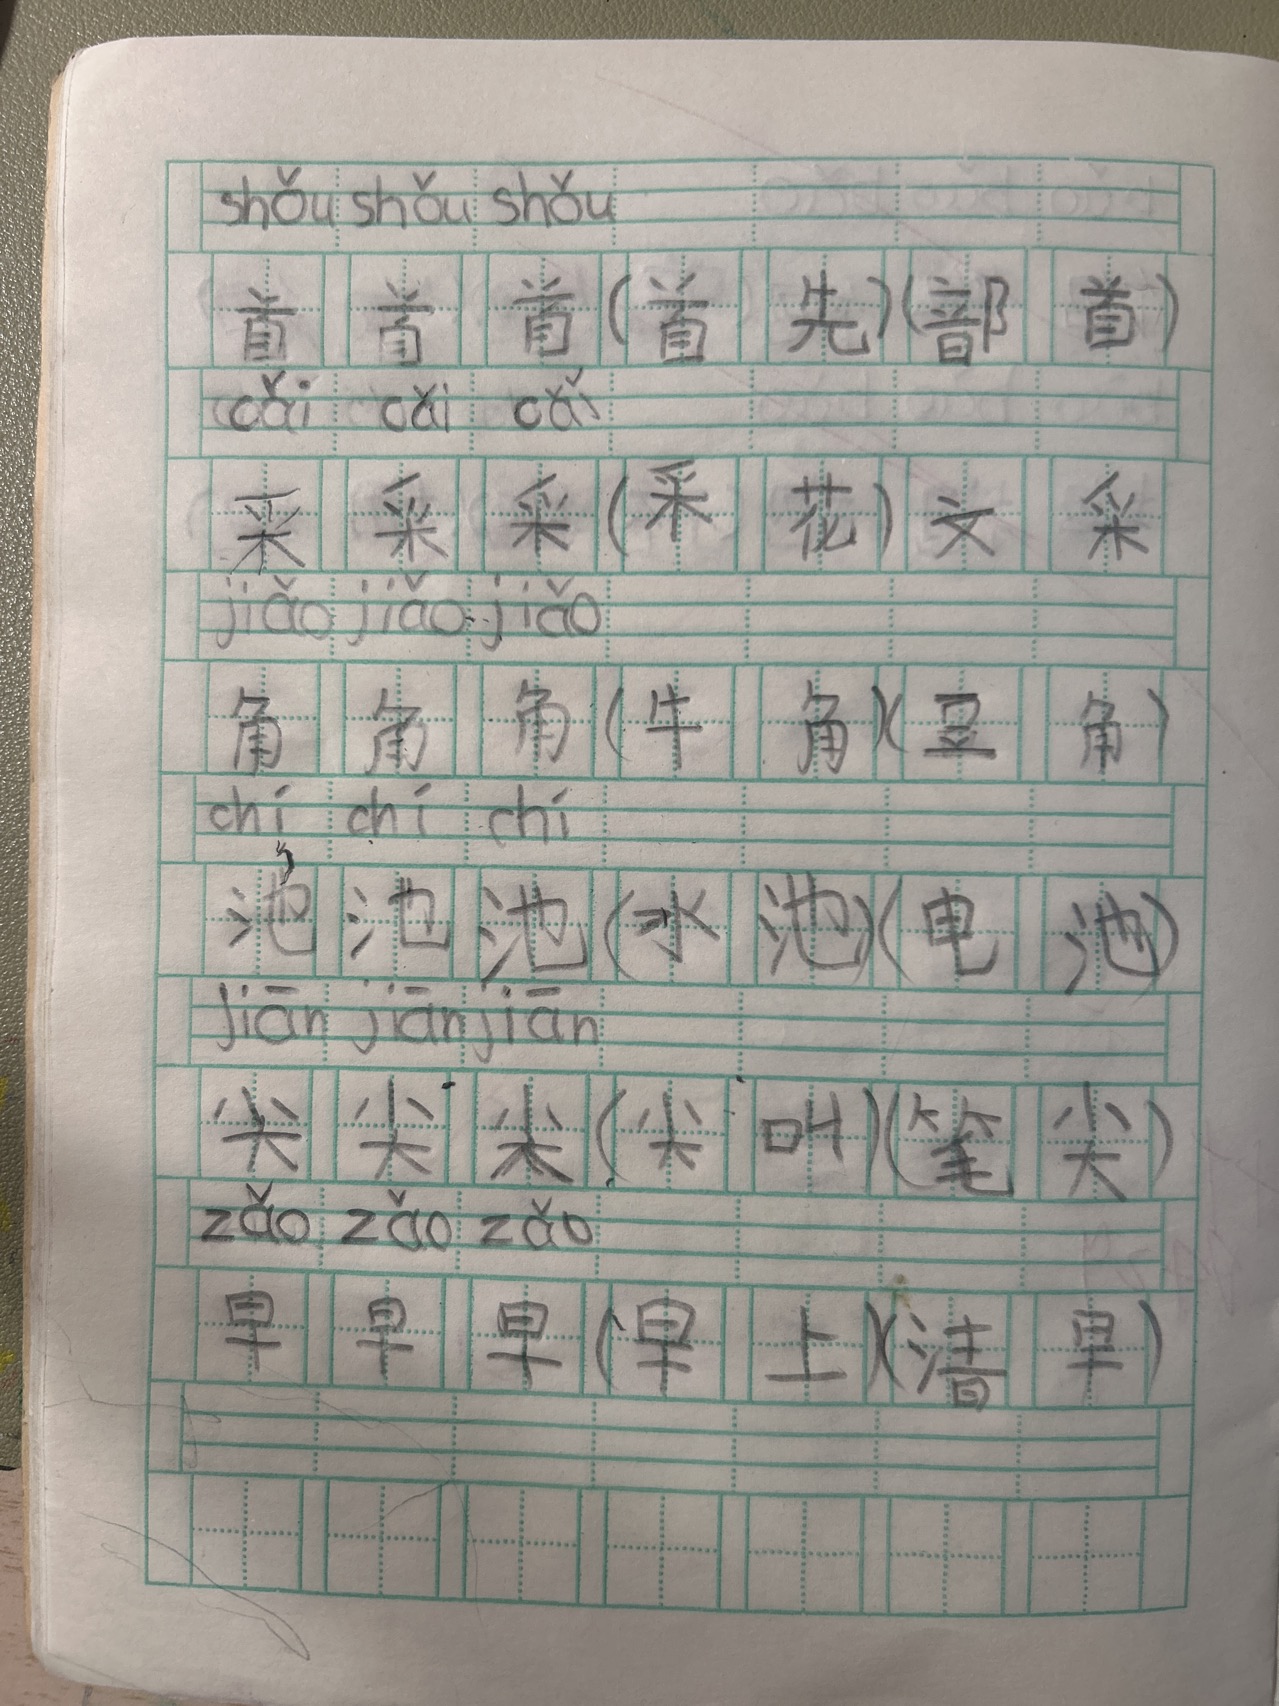 shǒu shǒu shǒu
首 首 首 (首 先) (部 首)
cǎi cǎi cǎi
采 采 采 (采 花) 文 采
jiǎo jiǎo jiǎo
角 角 角 (牛 角) (豆 角)
chí chí chí
池 池 池 (水 池) (电 池)
jiān jiān jiān
尖 尖 尖 (尖 叫) (笔 尖)
zǎo zǎo zǎo
早 早 早 (早 上) (清 早)